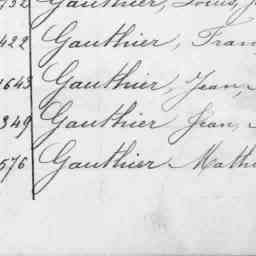 732 Gauthier, Louis,
422 Gauthier, Fran
1643 Gauthier, Jean,
349 Gauthier Jean,
576 Gauthier Mathi